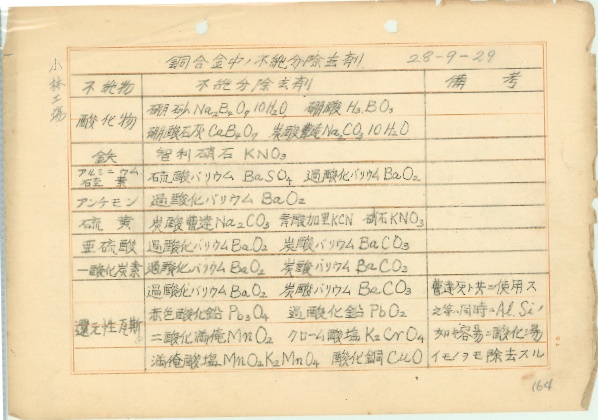 銅合金中ノ不純分除去剤 28-9-29
小林工場
不純物 不純分除去剤 備考
酸化物 硼砂Na₂B₄O₇10H₂O 硼酸H₃BO₃
硼酸石灰CaB₄O₇ 炭酸曹達Na₂CO₃10H₂O
鉄 智利硝石 KNO₃
アルミニウム
硅素 硫酸バリウムBaSO₄ 過酸化バリウムBaO₂
アンチモン 過酸化バリウムBaO₂
硫黄 炭酸曹達Na₂CO₃ 青酸加里KCN 硝石KNO₃
亜硫酸 過酸化バリウムBaO₂ 炭酸バリウムBaCO₃
一酸化炭素 過酸化バリウムBaO₂ 炭酸バリウムBaCO₃
還元性瓦斯 過酸化バリウムBaO₂ 炭酸バリウムBaCO₃ 曹達灰ト共ニ使用ス
赤色酸化鉛Pb₃O₄ 過酸化鉛PbO₂ 之等ハ同時ニAl, Siノ
二酸化満俺MnO₂ クローム酸塩K₂CrO₄ 如キ容易ニ酸化シ易
満俺酸塩MnO₂K₂MnO₄ 酸化銅CuO イモノヲモ除去スル
164